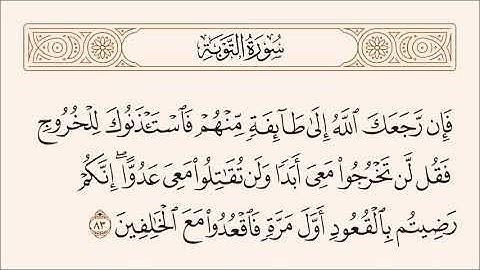 سُورَةُ التَّوْبَةِ
فَإِن رَّجَعَكَ ٱللَّهُ إِلَىٰ طَآئِفَةٍ مِّنْهُمْ فَٱسْتَـْٔذَنُوكَ لِلْخُرُوجِ
فَقُل لَّن تَخْرُجُوا۟ مَعِىَ أَبَدًا وَلَن تُقَـٰتِلُوا۟ مَعِىَ عَدُوًّا ۖ إِنَّكُمْ
رَضِيتُم بِٱلْقُعُودِ أَوَّلَ مَرَّةٍ فَٱقْعُدُوا۟ مَعَ ٱلْخَـٰلِفِينَ ٨٣